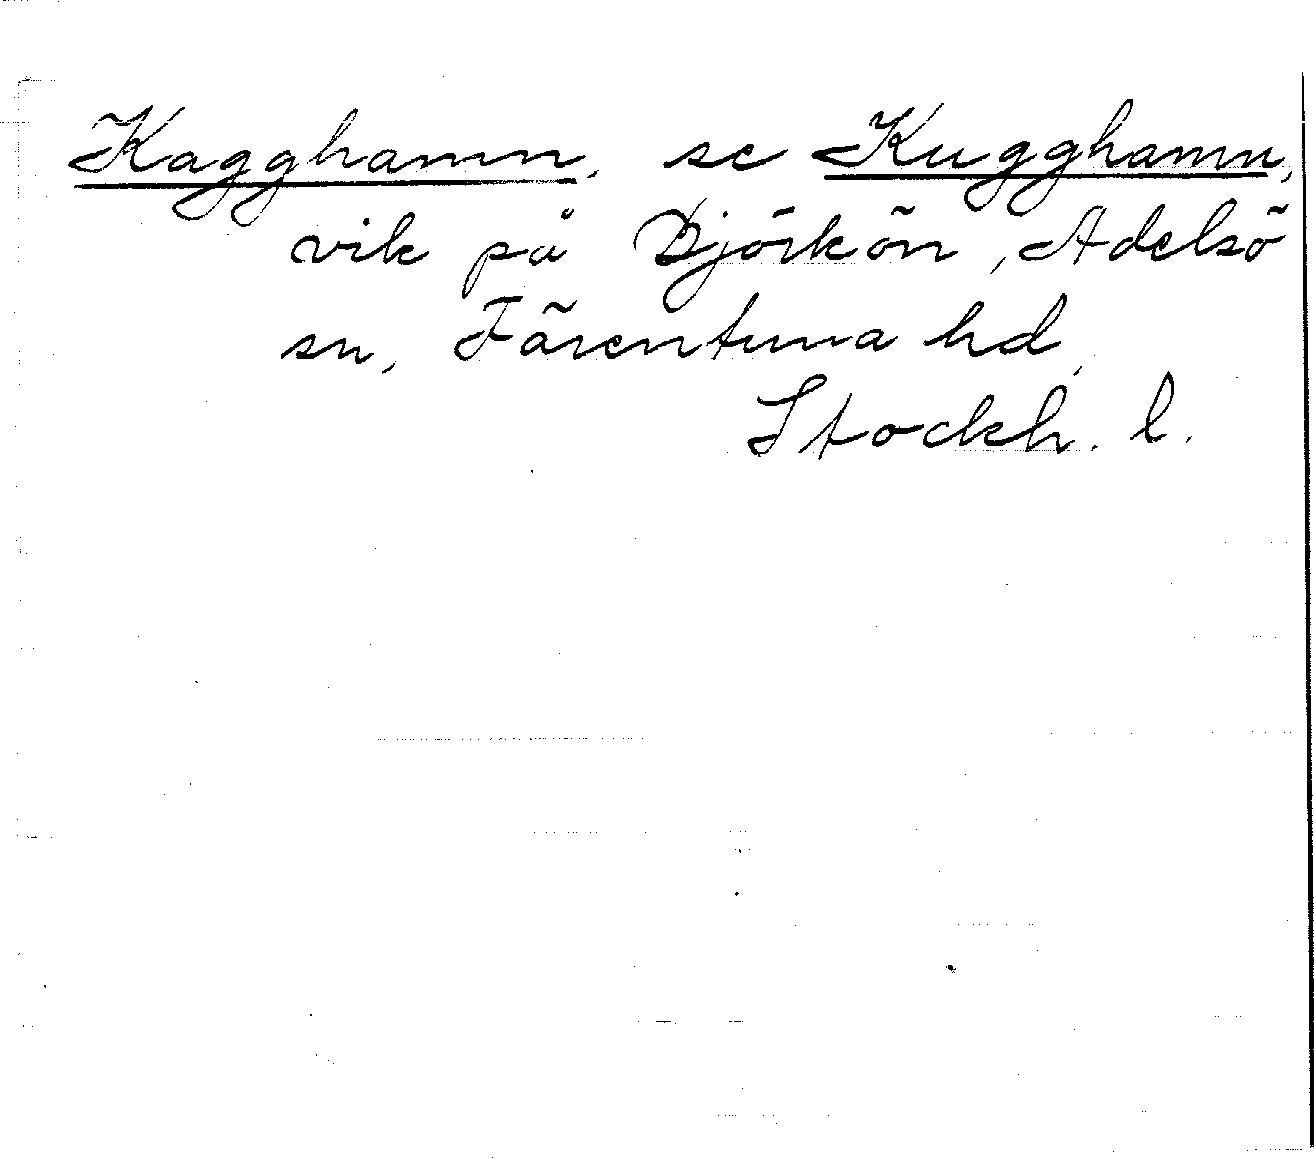 Kagghamn, se Kugghamn,
vik på Björkön, Adelsö
sn, Färentuna hd,
Stockh. l.